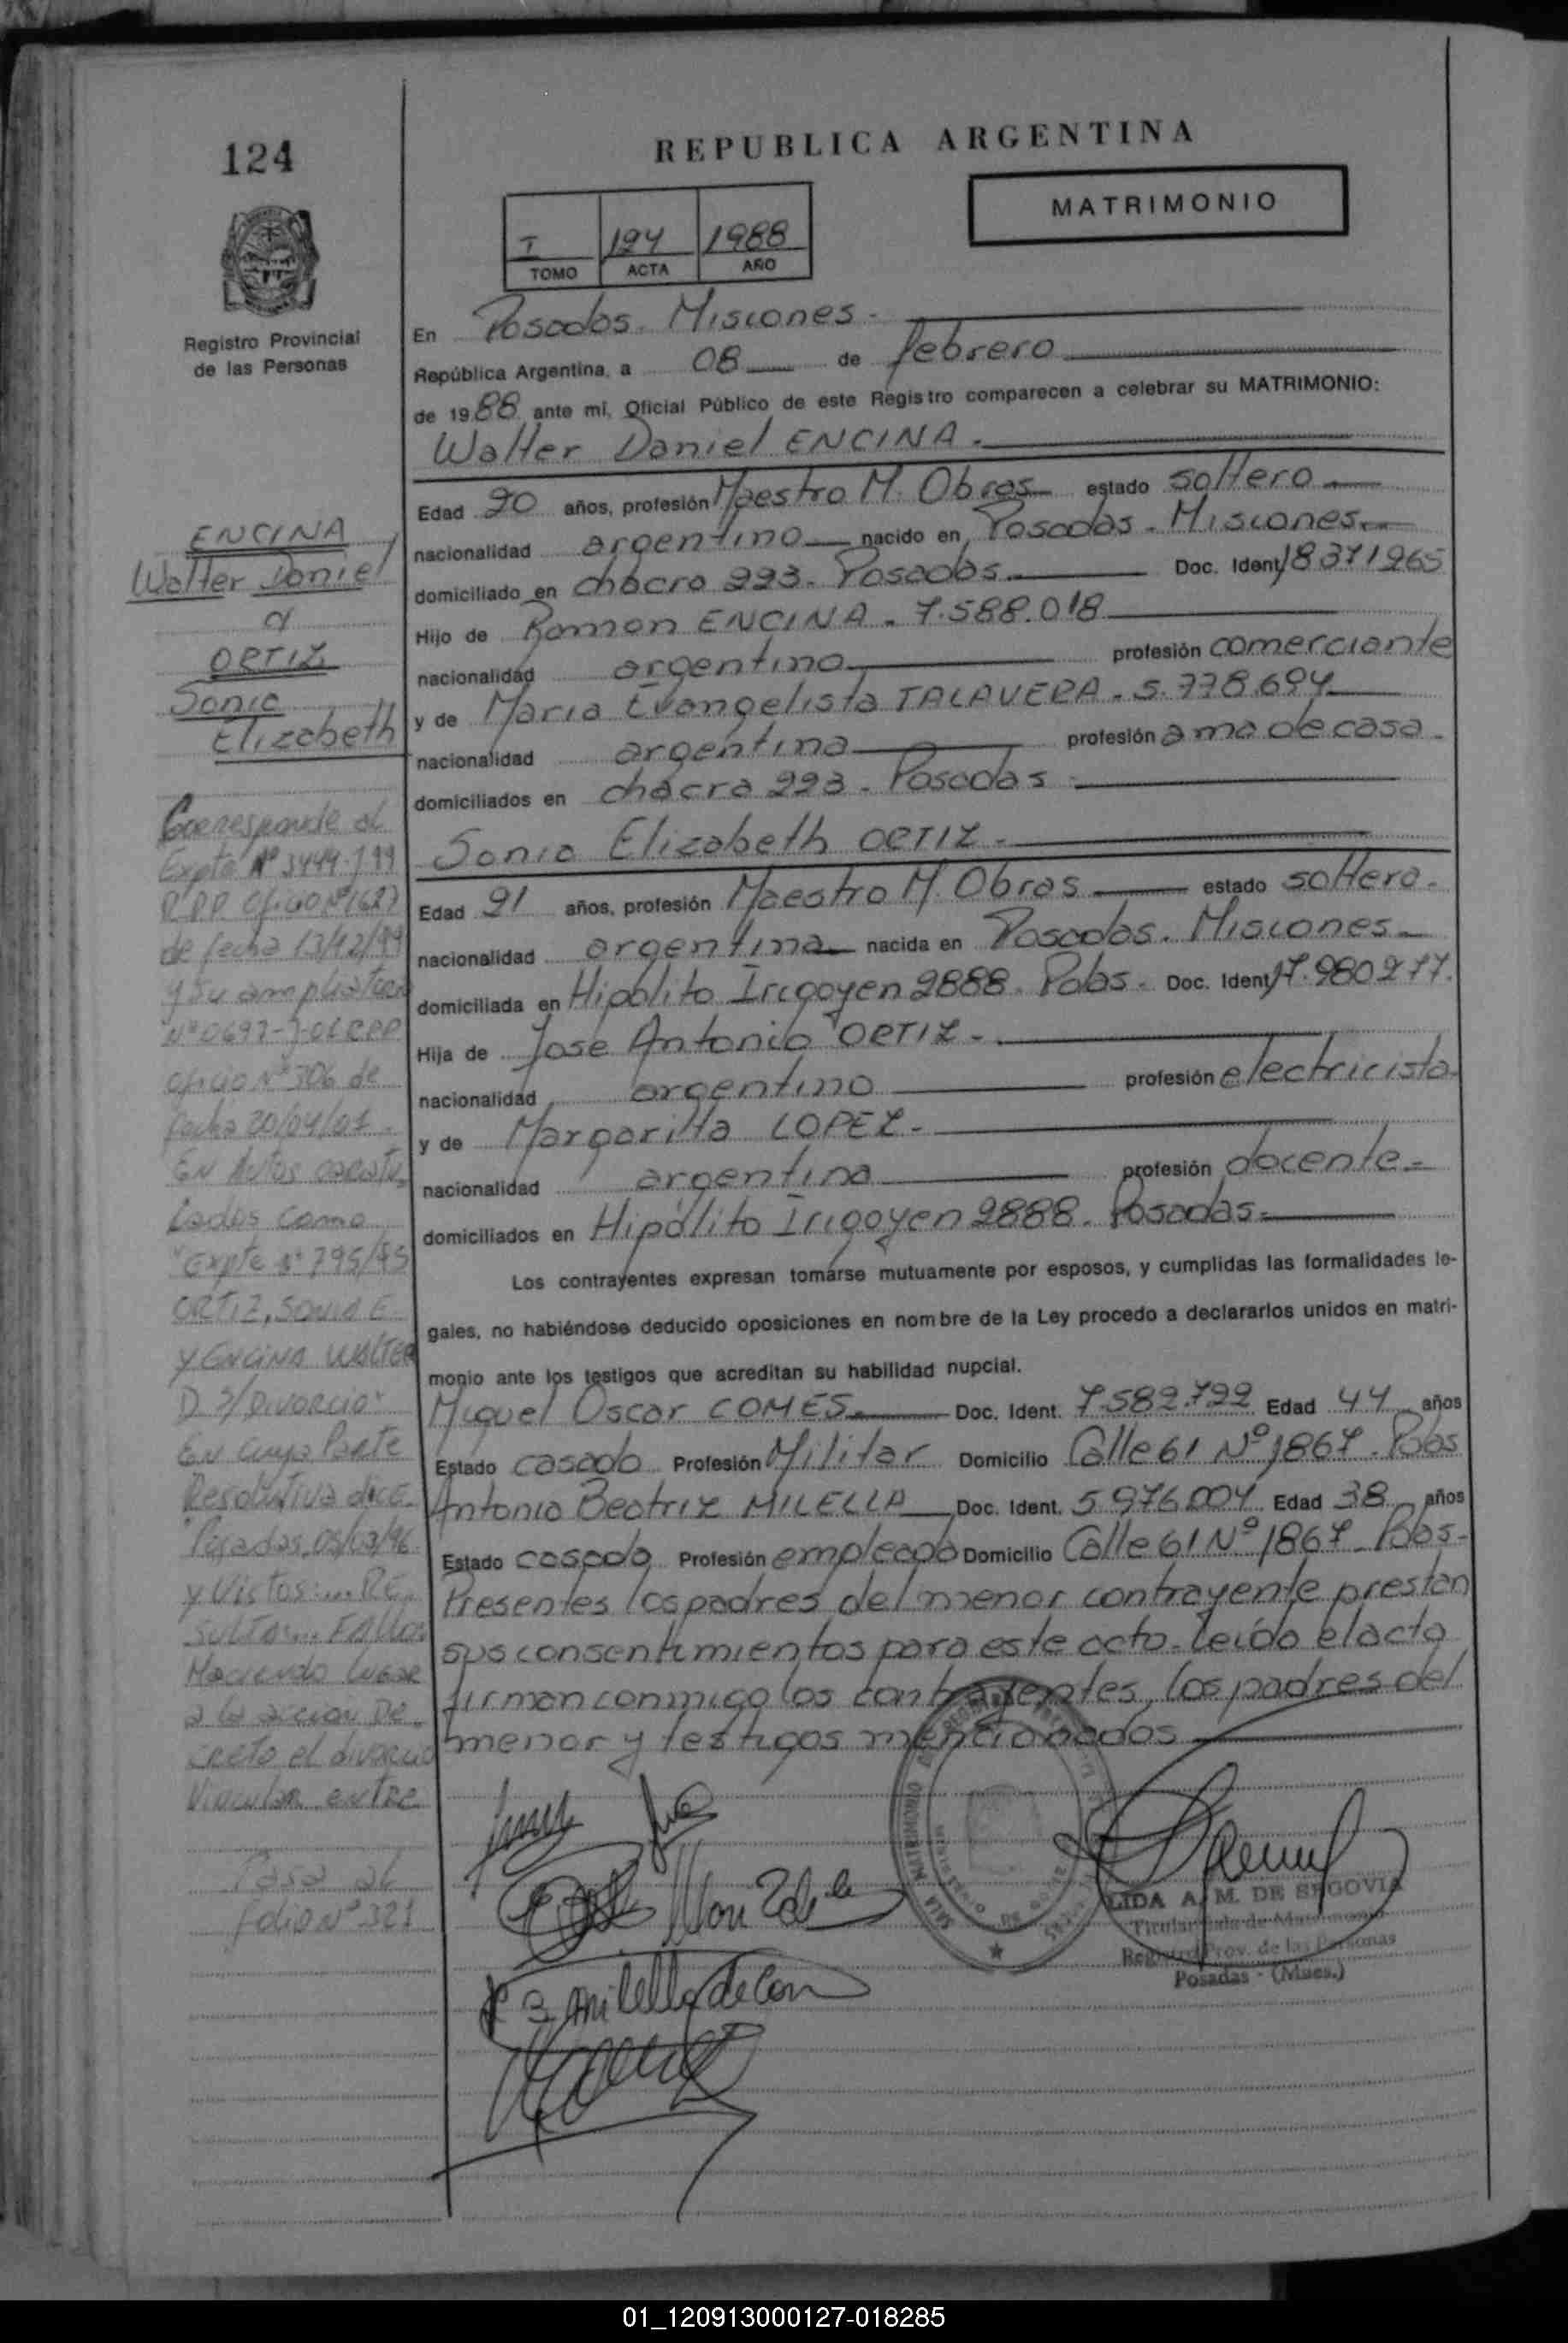 124
REPUBLICA ARGENTINA
MATRIMONIO
I 124 1988
TOMO ACTA AÑO
Registro Provincial
de las Personas
En Posadas. Misiones.
República Argentina, a 08 de febrero
de 1988 ante mí, Oficial Público de este Registro comparecen a celebrar su MATRIMONIO:
Walter Daniel ENCINA.
Edad 20 años, profesión Maestro M. Obras estado soltero
nacionalidad argentino nacido en Posadas. Misiones.
domiciliado en chacra 223. Posadas Doc. Ident 18371265
Hijo de Ramon ENCINA. 7.588.018
nacionalidad argentino profesión comerciante
y de Maria Evangelista TALAVERA. 5.778.694
nacionalidad argentina profesión ama de casa.
domiciliados en chacra 223. Posadas
Sonia Elizabeth ORTIZ.
Edad 21 años, profesión Maestro M. Obras estado soltera.
nacionalidad argentina nacida en Posadas. Misiones
domiciliada en Hipólito Irigoyen 2888. Pdas. Doc. Ident 17.980277.
Hija de José Antonio ORTIZ.
nacionalidad argentino profesión electricista
y de Margarita LOPEZ.
nacionalidad argentina profesión docente
domiciliados en Hipólito Irigoyen 2888. Posadas.
Los contrayentes expresan tomarse mutuamente por esposos, y cumplidas las formalidades le-
gales, no habiéndose deducido oposiciones en nombre de la Ley procedo a declararlos unidos en matri-
monio ante los testigos que acreditan su habilidad nupcial.
Miguel Oscar COMES Doc. Ident. 7.582.722 Edad 44 años
Estado casado Profesión Militar Domicilio Calle 61 Nº 1867. Pdas
Antonia Beatriz MILELLA Doc. Ident. 5976.004 Edad 38 años
Estado casada Profesión empleada Domicilio Calle 61 Nº 1867. Pdas.
Presentes los padres del menor contrayente prestan
sus consentimientos para este acto. Leída el acta
firman conmigo los contrayentes, los padres del
menor y testigos mencionados
LIDA A. M. DE SEGOVIA
Titular Sala de Matrimonio
Registro Prov. de las Personas
Posadas - (Mnes.)
ENCINA
Walter Daniel
y
ORTIZ
Sonia
Elizabeth
Corresponde al
Expte Nº 3449-J-99
RPP Oficio Nº 1627
de fecha 13/12/99
y su ampliatorio
Nº 0697-J-01 RPP
Oficio Nº 306 de
fecha 20/04/01
EN Autos caratu-
lados como
"Expte Nº 795/95
ORTIZ, SONIA E
Y ENCINA WALTER
D S/ DIVORCIO"
En cuya Parte
Resolutiva dice
"Posadas, 05/03/96
y Vistos:... RE-
SULTA:... FALLO:
Haciendo lugar
a la accion De-
creto el divorcio
Vincular entre
Pasa al
folio Nº 321
01_120913000127-018285